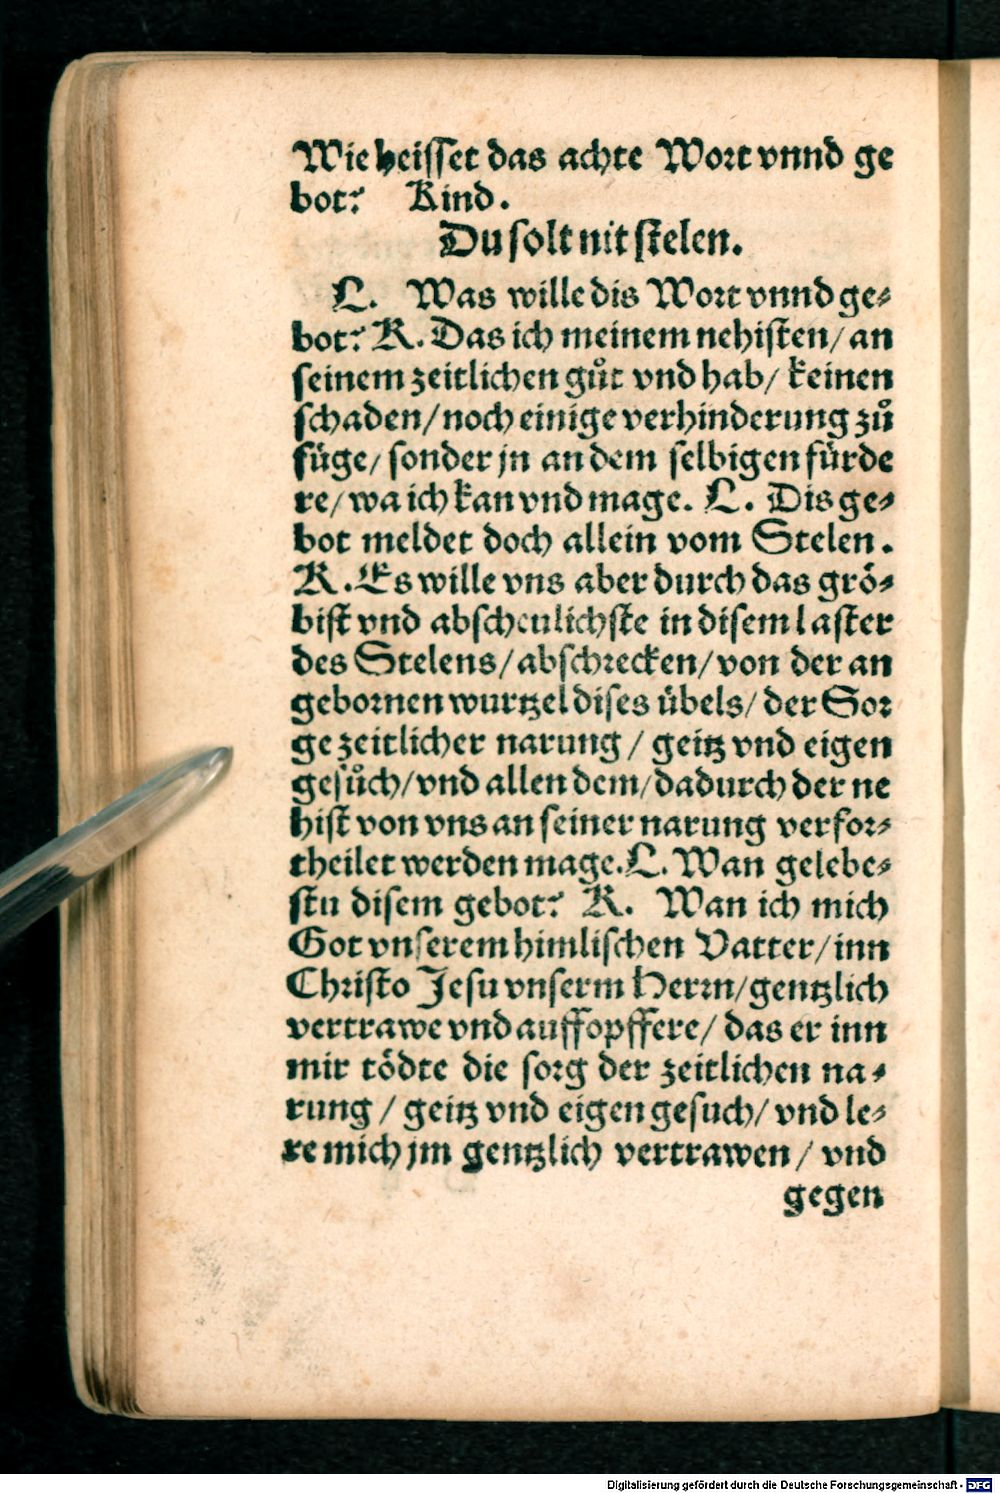 Wie heisset das achte Wort vnnd ge
bot? Kind.
Du solt nit stelen.
L. Was wille dis Wort vnnd ge⸗
bot? K. Das ich meinem nehisten/ an
seinem zeitlichen gůt vnd hab/ keinen
schaden/ noch einige verhinderung zů
füge/ sonder jn an dem selbigen fürde
re/ wa ich kan vnd mage. L. Dis ge⸗
bot meldet doch allein vom Stelen.
K. Es wille vns aber durch das grö⸗
bist vnd abscheulichste in disem laster
des Stelens/ abschrecken/ von der an
gebornen wurtzel dises übels/ der Sor
ge zeitlicher narung/ geitz vnd eigen
gesůch/ vnd allen dem/ dadurch der ne
hist von vns an seiner narung verfor⸗
theilet werden mage. L. Wan gelebe⸗
stu disem gebot? K. Wan ich mich
Got vnserem himlischen Vatter/ inn
Christo Jesu vnserm Herrn/ gentzlich
vertrawe vnd auffopffere/ das er inn
mir tödte die sorg der zeitlichen na⸗
rung/ geitz vnd eigen gesuch/ vnd le⸗
re mich jm gentzlich vertrawen/ vnd
gegen
Digitalisierung gefördert durch die Deutsche Forschungsgemeinschaft - DFG